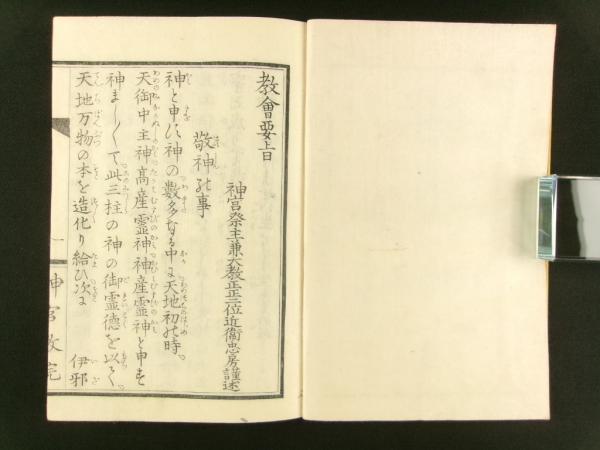 教會要旨
神宮祭主兼大教正三位近衞忠房謹述
敬神の事
神と申に神の數多なる中に天地初の時
天御中主神高産霊神神産霊神と申す
神ましくて此三柱の神の御霊徳を以て
天地万物の本を造化り給ひ次に 伊邪
一 神宮教院